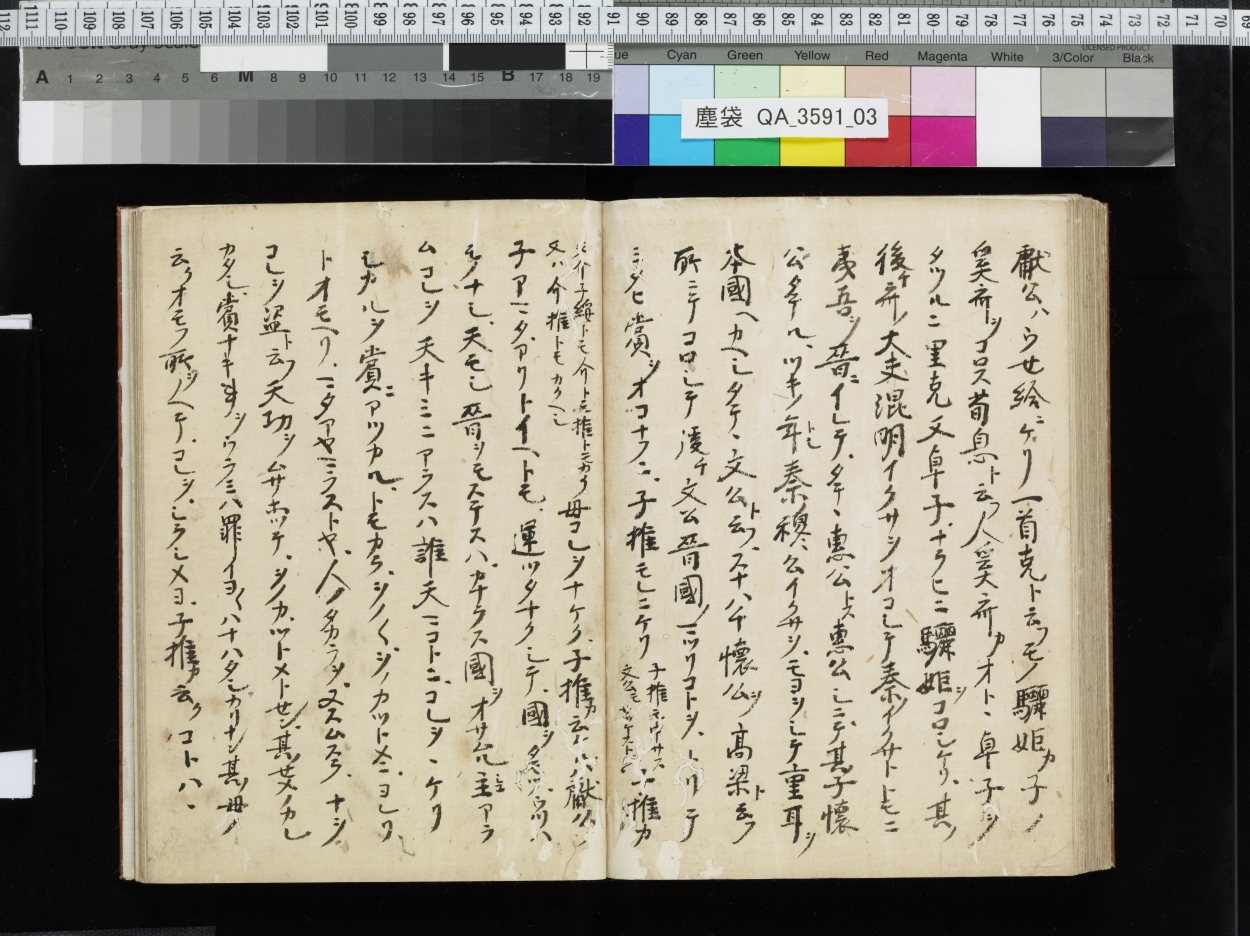 Cyan Green Yellow Red Magenta White 3/Color Black
LICENSED PRODUCT
A 1 2 3 4 5 6 M 8 9 10 11 12 13 14 15 B 17 18 19
塵袋 QA_3591_03
獻公ハウセ給ニケリ 首克ト云フモノ驪姫カ子ノ
奚齊ヲコロス荀息ト云フ人奚齊カオトヽ卓子ヲ
タツルニ里克又卓子ナラヒニ驪姫ヲコロシケリ、其ノ
後チ齊ノ大夫混明イクサヲオコシテ秦ノイクサトトモニ
夷吾ヲ晉ニイレテ、タヽ惠公トス惠公シニテ其子懷
公タチヌ、ツキノ年シ秦穆公イクサヲモヨヲシテ重耳ヲ
本國ヘカヘシタテ、文公ト云フ、スナハチ懷公ヲ高梁ト云フ
所ニテコロシテ後チ文公晉國ノマツリコトヲトリテ
ミタヒ賞ヲオコナフニ、子推モレニケリ
子推モ申サス
子推カ
又ハ介推トモカクヘシ
母コレヲナケク、子推カ云ク獻公ノ
子アマタアリトイヘトモ、運ツタナクシテ、國ヲタモツハ
モノナシ、天モシ晉ヲモステスハ、カナラス國ヲオサムル主アラ
ムコレヲ天キミニアラスハ誰天マコトニコレヲヽケリ
シカルヲ賞ニアツカルトモカラ、ヲノ〱ヲノカツトメニヨレリ
トオモヘリ、マタアヤマラストヤ、人ノタカラヲヌスムスラ、ナヲ
コレヲ盗ト云フ天功ヲムサホツテ、ヲノカツトメトセン、其ノ世メノカレ
カタシ賞ナキ事ヲウラミハ罪イヨ〱ハナハタシカリナン其ノ母ノ
云クオモフ所ヲノヘテ、コレヲシラシメヨ、子推カ云クコトハヽ